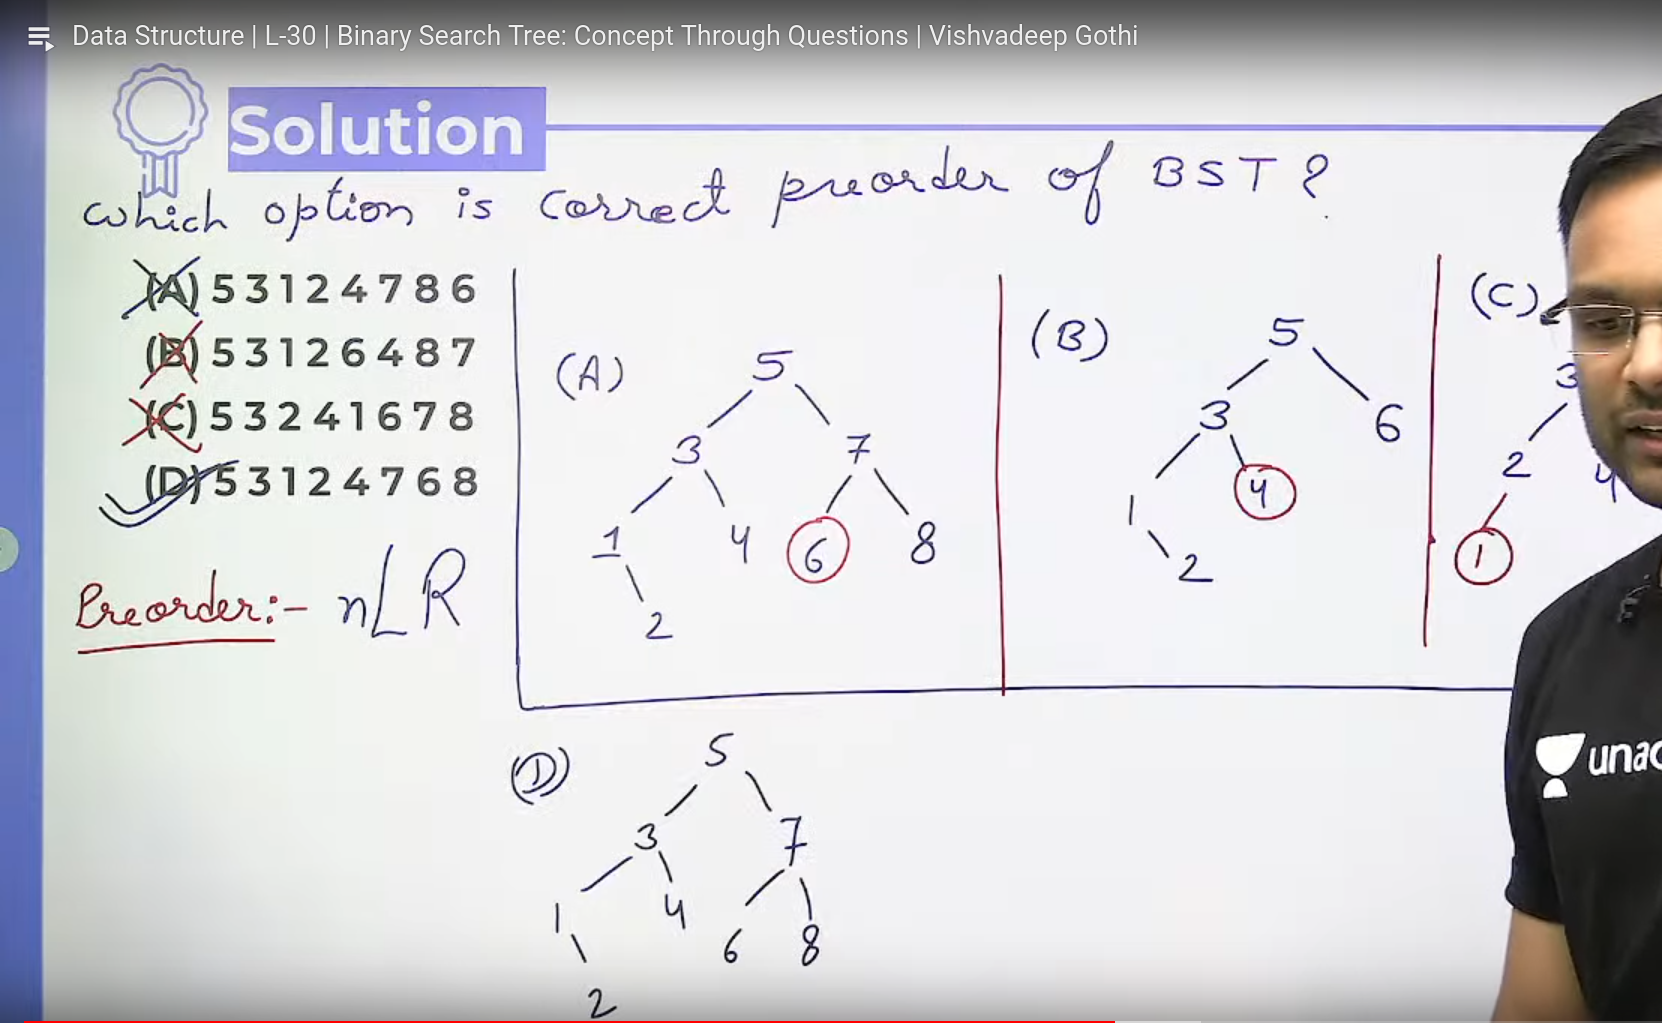 Data Structure | L-30 | Binary Search Tree: Concept Through Questions | Vishvadeep Gothi
Solution
Which option is correct preorder of BST ?
(A) 5 3 1 2 4 7 8 6
(B) 5 3 1 2 6 4 8 7
(C) 5 3 2 4 1 6 7 8
(D) 5 3 1 2 4 7 6 8
Preorder:- nLR
(A)
5
3 7
1 4 6 8
2
(B)
5
3 6
1 4
2
(C)
3
2 4
1
(D)
5
3 7
1 4 6 8
2